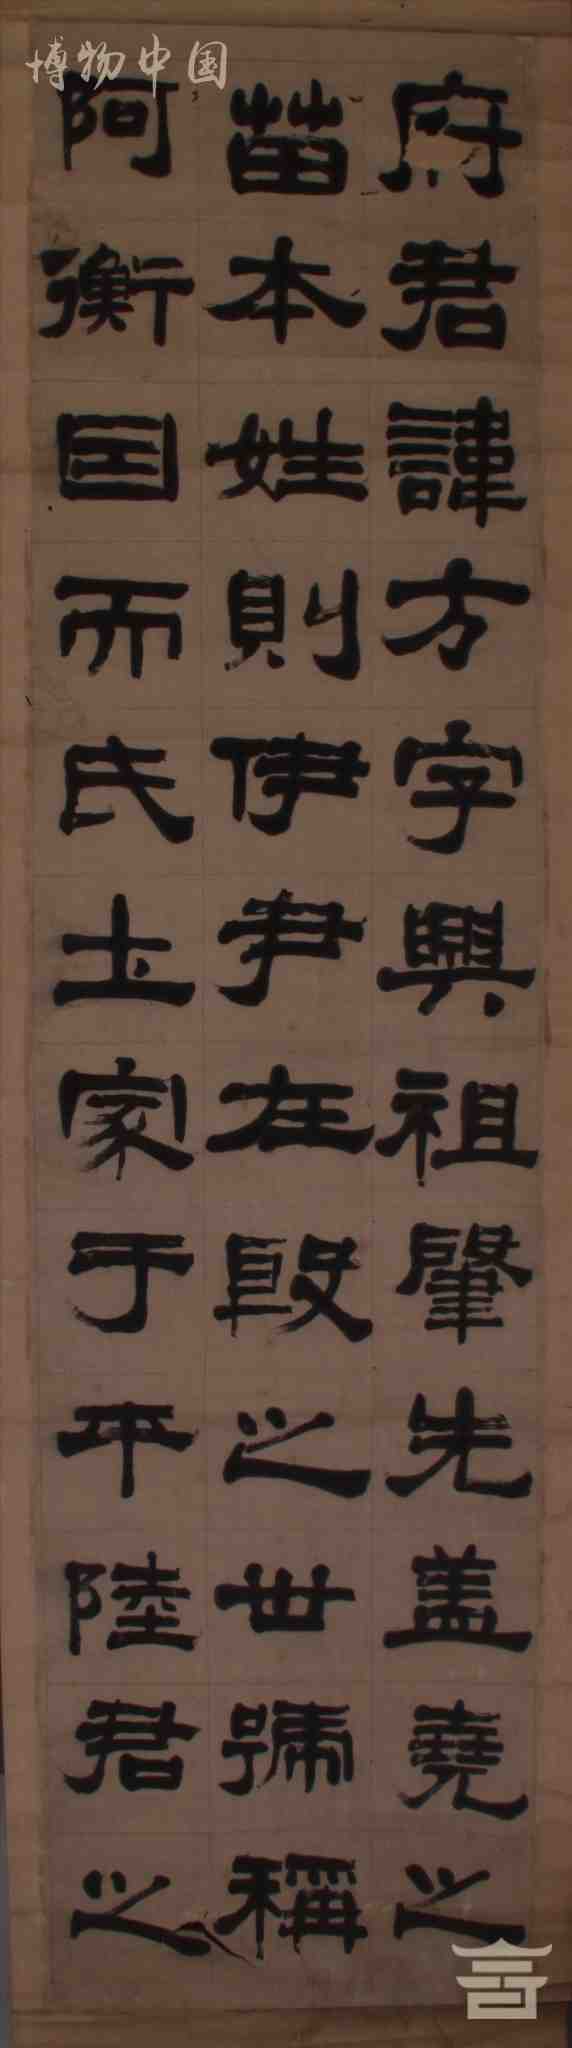 博物中国
府君諱方字興祖肇先盖堯之
苗本姓則伊尹在殷之世號稱
阿衡因而氏土家于平陸君之